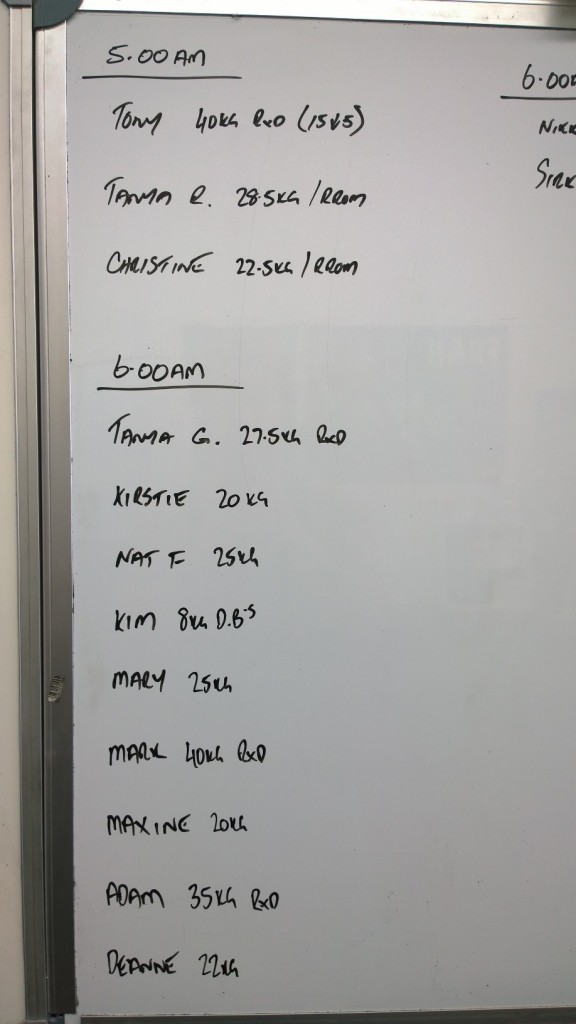 5.00AM
TONY 40KG RXD (15V5)
TANYA R. 28.5KG / RROM
CHRISTINE 22.5KG / RROM
6.00AM
TANYA G. 27.5KG RXD
KIRSTIE 20KG
NAT F 25KG
KIM 8KG D.B'S
MARY 25KG
MARK 40KG RXD
MAXINE 20KG
ADAM 35KG RXD
DEANNE 22KG
6.00
NIKK
SIRK